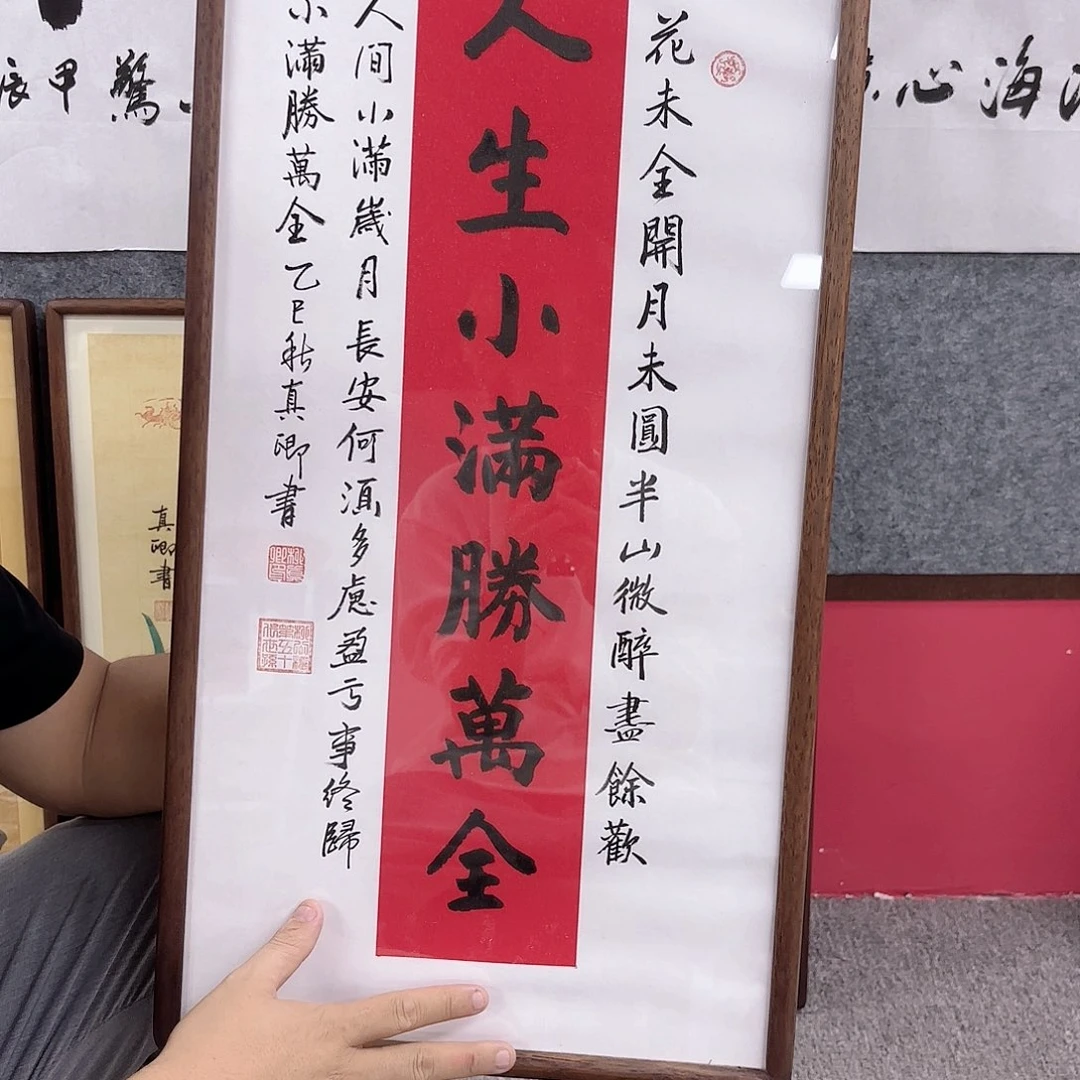 花未全開月未圓半山微醉盡餘歡
人生小滿勝萬全
人间小滿歲月長安何須多慮盈亏事终歸
小滿勝萬全乙巳秋真卿書
海心
驚
甲辰
真卿書